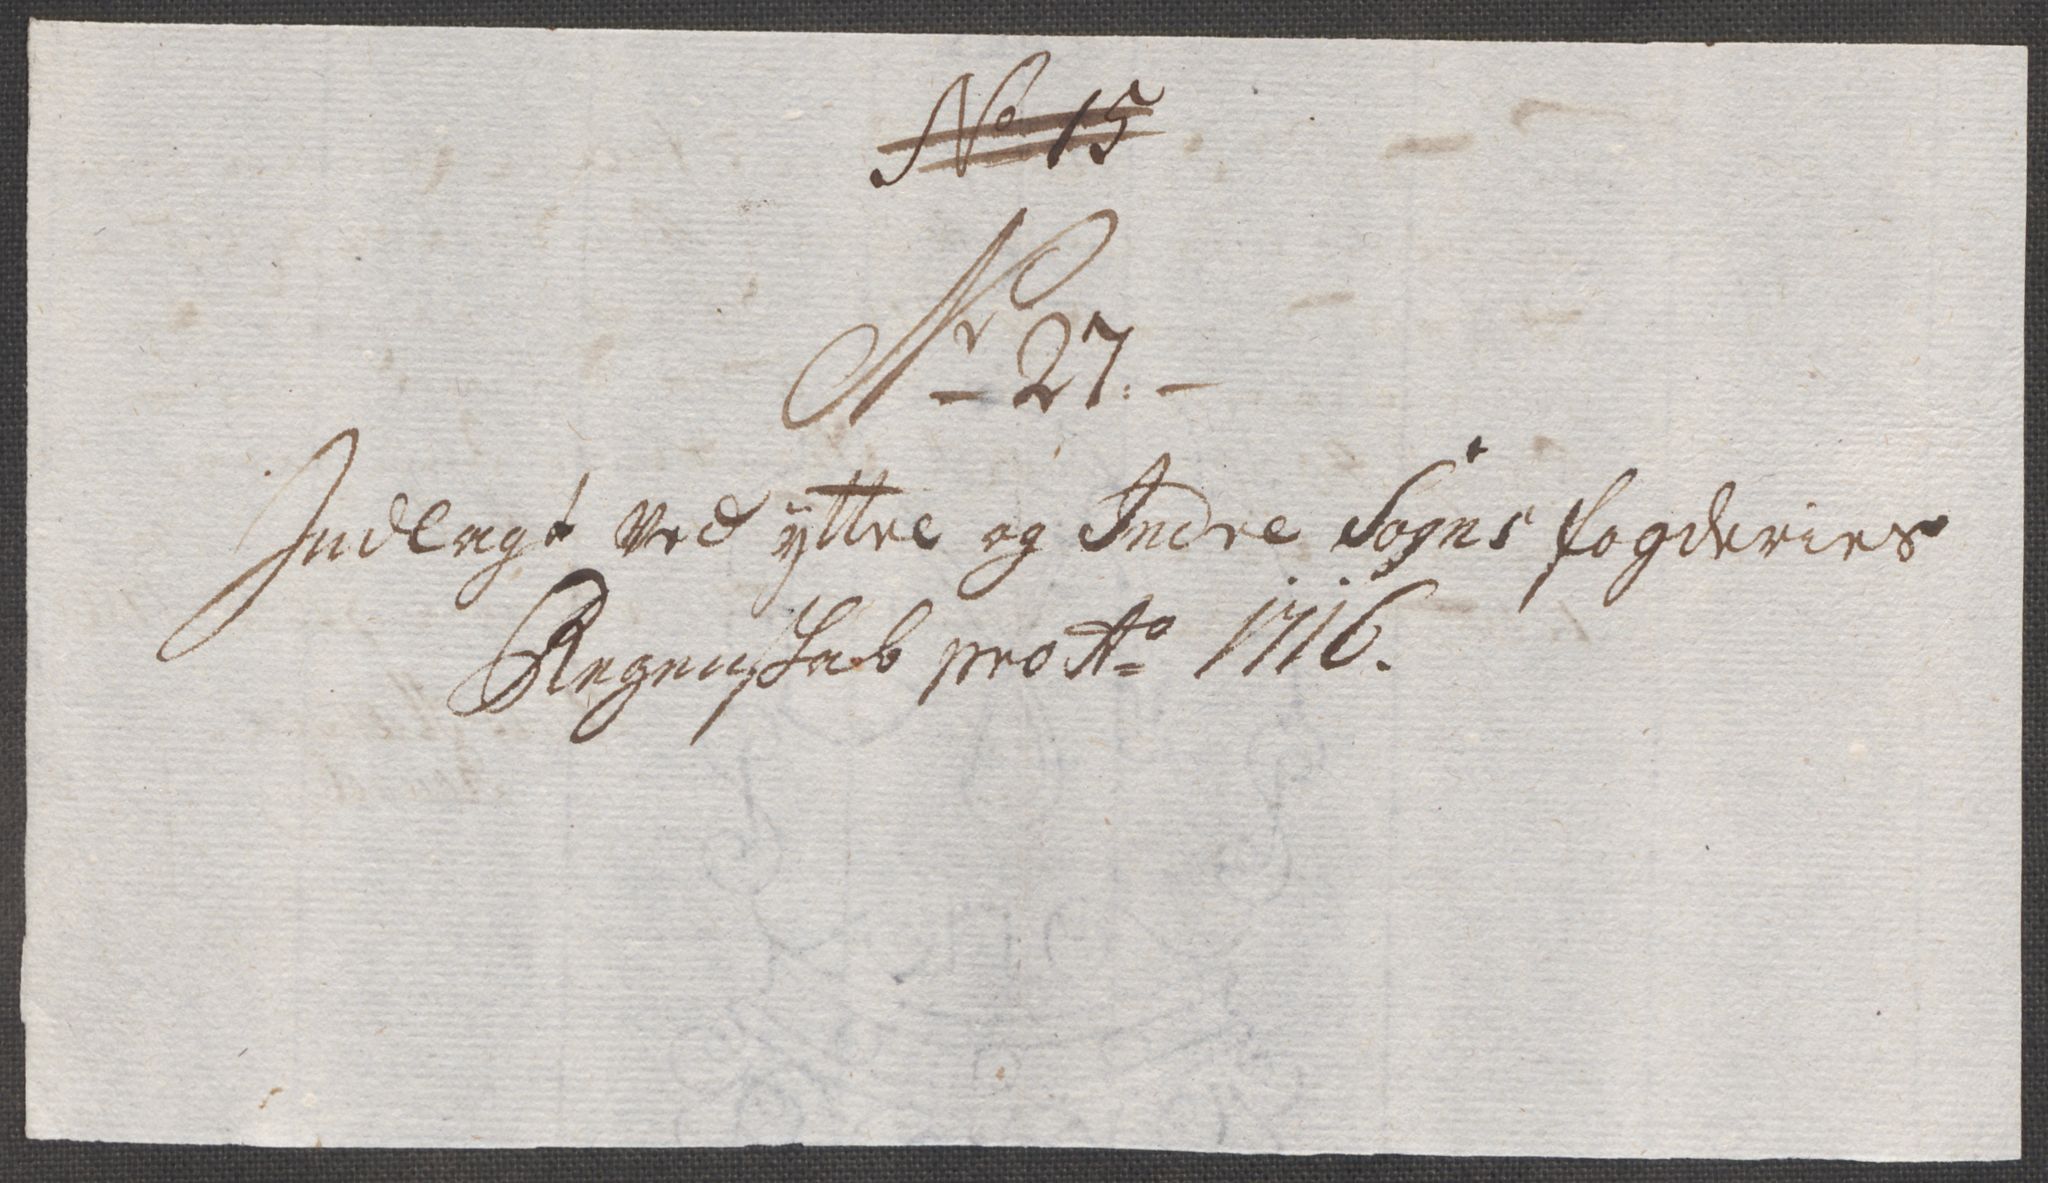 No 15
Nr 27.
Indlagt ved ÿttre og Indre Sogns fogderies
Regenskab pro Ao 1716.